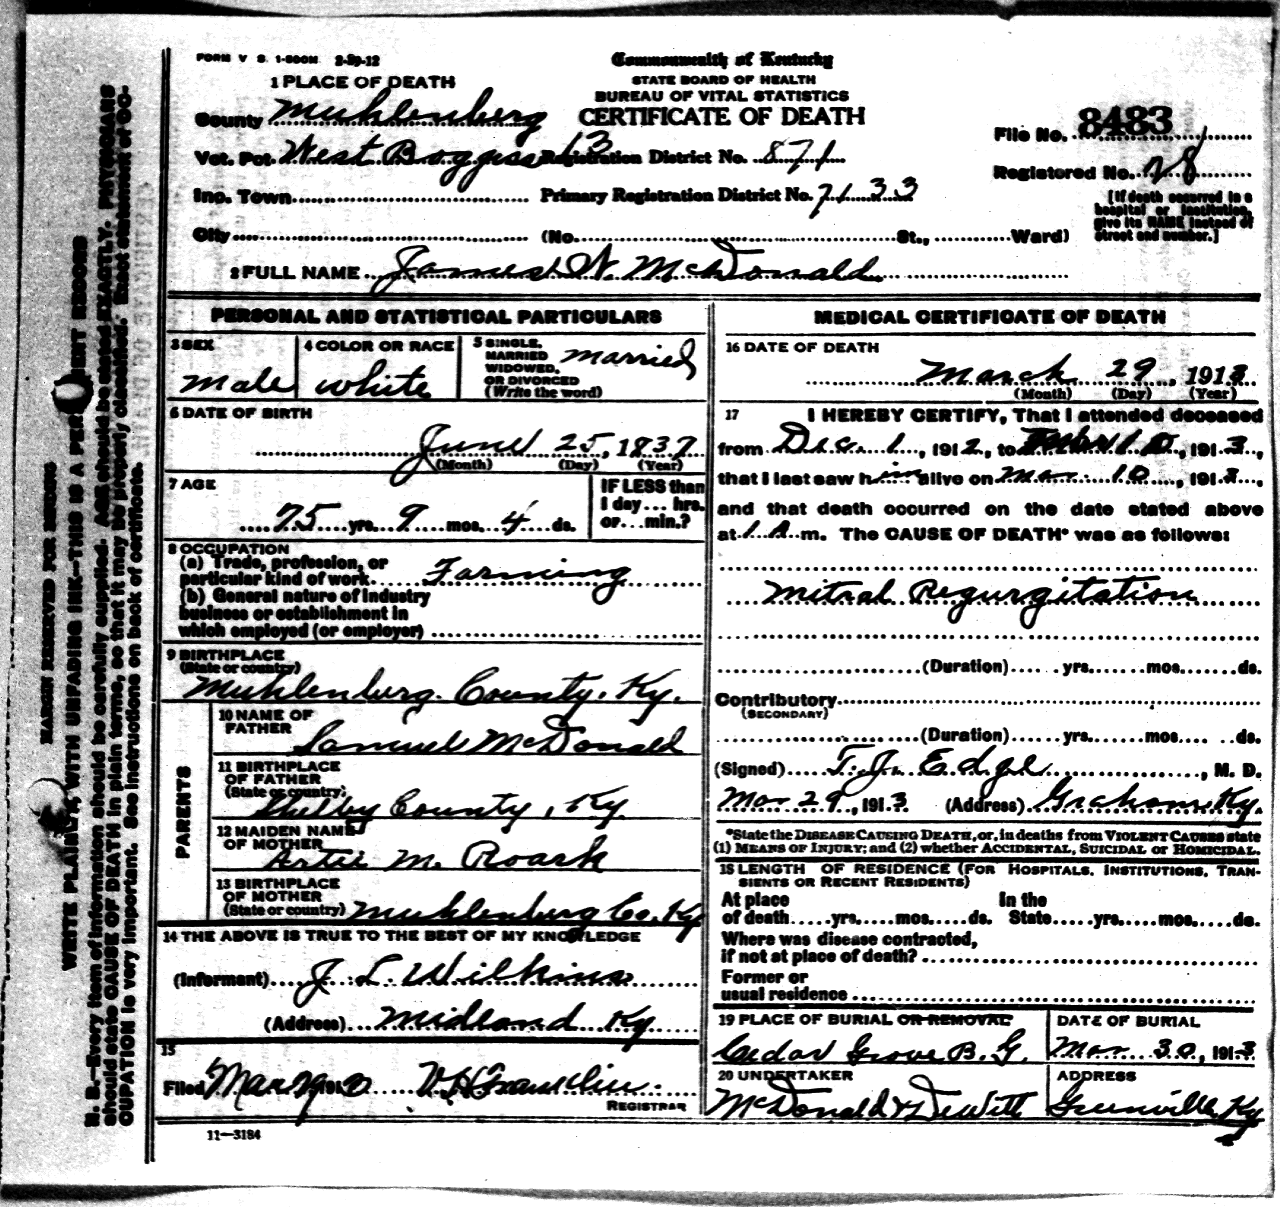 FORM V. S. 1-500M 2-29-12
Commonwealth of Kentucky
STATE BOARD OF HEALTH
BUREAU OF VITAL STATISTICS
CERTIFICATE OF DEATH
1 PLACE OF DEATH
County Muhlenberg
Vot. Pct. West Boggess 13 Registration District No. 871
Inc. Town Primary Registration District No. 7133
City (No. St., Ward)
File No. 8483
Registered No. 28
[If death occurred in a
hospital or institution,
give its NAME instead of
street and number.]
2 FULL NAME James W. McDonald
PERSONAL AND STATISTICAL PARTICULARS
3 SEX
Male
4 COLOR OR RACE
white
5 SINGLE,
MARRIED
WIDOWED,
OR DIVORCED
(Write the word)
married
6 DATE OF BIRTH
June 25, 1837
(Month) (Day) (Year)
7 AGE
75 yrs. 9 mos. 4 ds.
IF LESS than
1 day... hrs.
or... min.?
8 OCCUPATION
(a) Trade, profession, or
particular kind of work Farming
(b) General nature of industry
business or establishment in
which employed (or employer)
9 BIRTHPLACE
(State or country)
Muhlenberg County, Ky.
PARENTS
10 NAME OF
FATHER
Samuel McDonald
11 BIRTHPLACE
OF FATHER
(State or country)
Shelby County, Ky.
12 MAIDEN NAME
OF MOTHER
Artie M. Roark
13 BIRTHPLACE
OF MOTHER
(State or country) Muhlenberg Co. Ky
14 THE ABOVE IS TRUE TO THE BEST OF MY KNOWLEDGE
(Informant) J. L. Wilkins
(Address) Midland Ky
15
Filed Mar 29 191 V H Franklin
REGISTRAR
11-3184
MEDICAL CERTIFICATE OF DEATH
16 DATE OF DEATH
March 29, 1913
(Month) (Day) (Year)
17 I HEREBY CERTIFY, That I attended deceased
from Dec. 1, 1912, to 10, 1913,
that I last saw him alive on Mar 10, 1913,
and that death occurred on the date stated above
at 1 A m. The CAUSE OF DEATH* was as follows:
Mitral Regurgitation
(Duration) yrs. mos. ds.
Contributory
(SECONDARY)
(Duration) yrs. mos. ds.
(Signed) T. J. Edge, M. D.
Mar 29, 1913 (Address) Graham, Ky.
*State the DISEASE CAUSING DEATH, or, in deaths from VIOLENT CAUSES state
(1) MEANS OF INJURY; and (2) whether ACCIDENTAL, SUICIDAL or HOMICIDAL.
18 LENGTH OF RESIDENCE (FOR HOSPITALS, INSTITUTIONS, TRAN-
SIENTS OR RECENT RESIDENTS)
At place In the
of death yrs. mos. ds. State yrs. mos. ds.
Where was disease contracted,
if not at place of death?
Former or
usual residence
19 PLACE OF BURIAL OR REMOVAL
Cedar Grove B. G.
DATE OF BURIAL
Mar. 30, 1913
20 UNDERTAKER
McDonald & DeWitt
ADDRESS
Greenville, Ky
MARGIN RESERVED FOR BINDING
WRITE PLAINLY, WITH UNFADING INK—THIS IS A PERMANENT RECORD
N. B.—Every item of information should be carefully supplied. AGE should be stated EXACTLY. PHYSICIANS
should state CAUSE OF DEATH in plain terms, so that it may be properly classified. Exact statement of OC-
CUPATION is very important. See instructions on back of certificate.